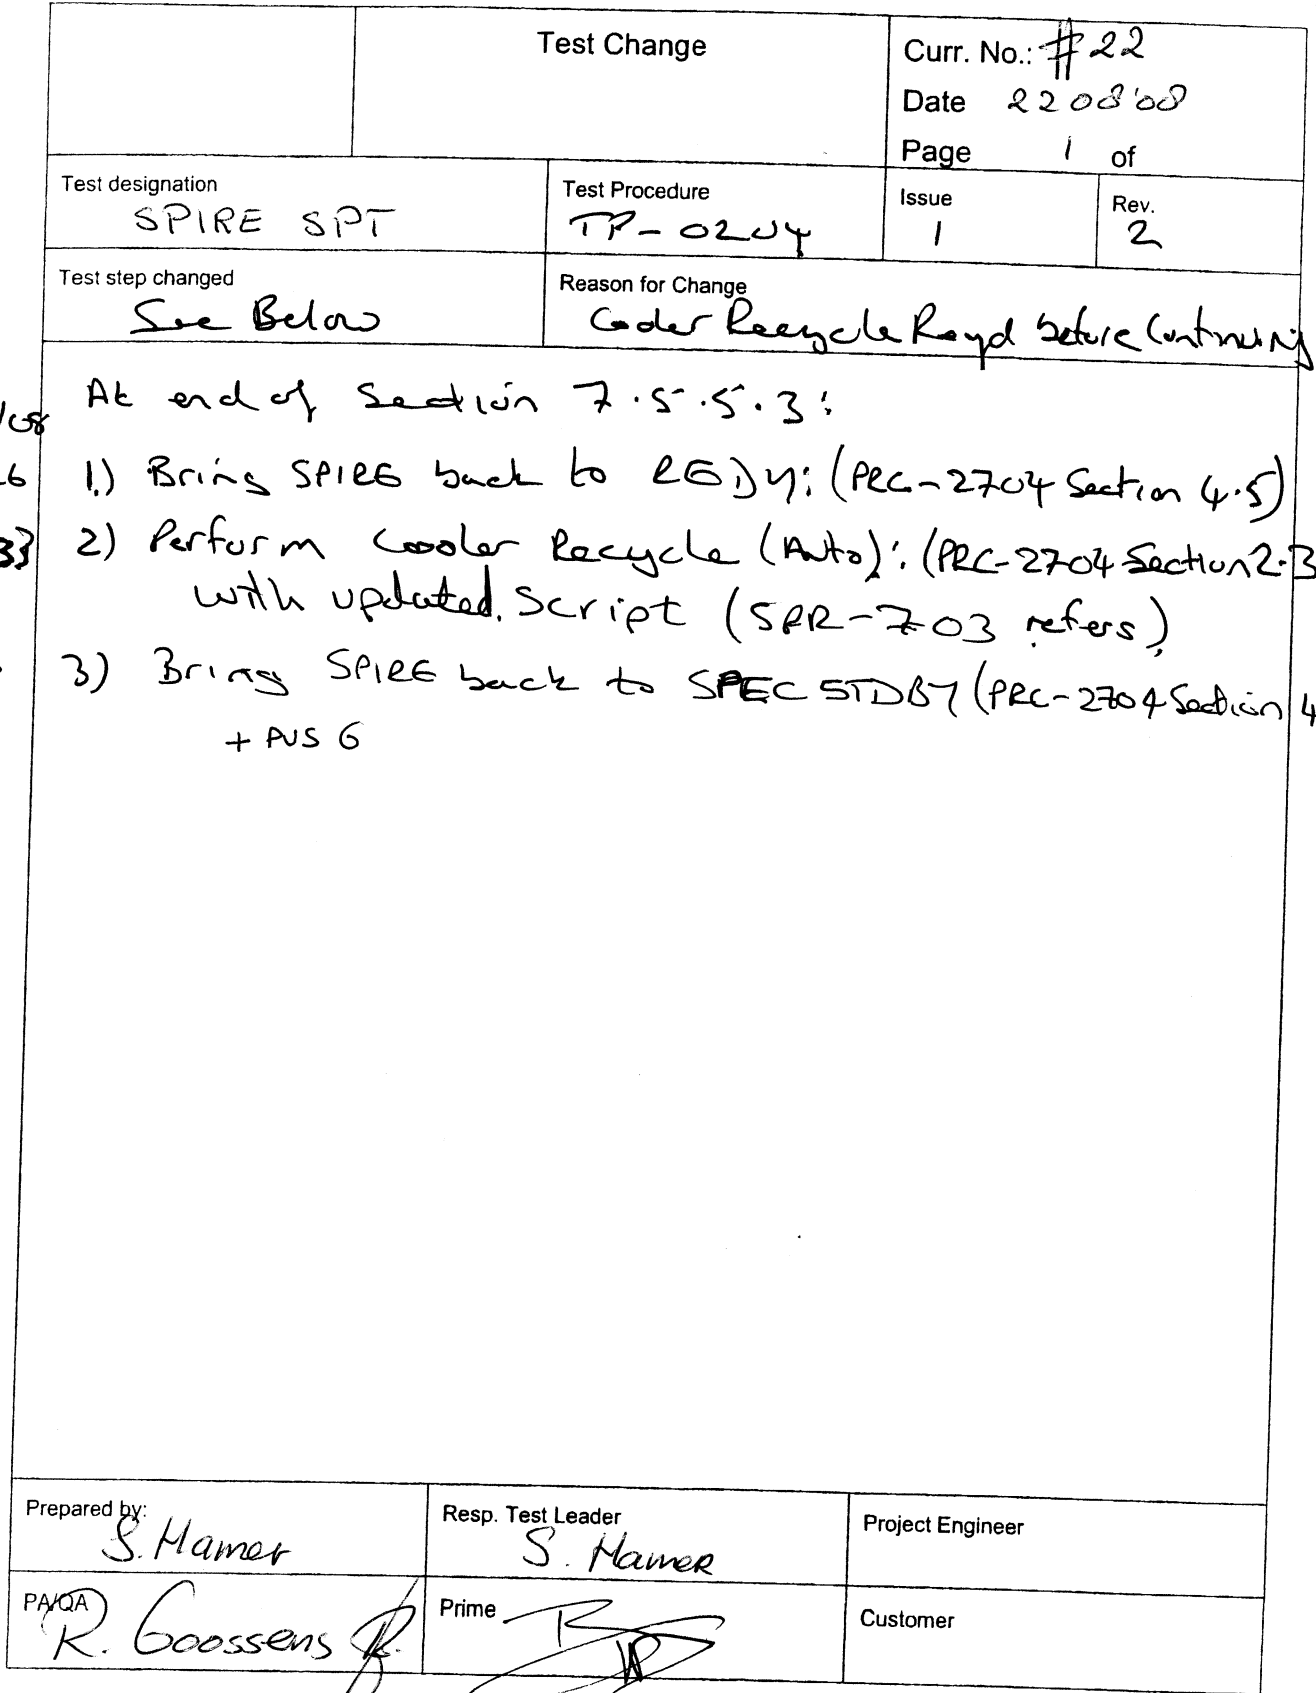 Test Change
Curr. No.: #22
Date 220808
Page 1 of
Test designation
SPIRE SPT
Test Procedure
TP-0204
Issue
1
Rev.
2
Test step changed
See Below
Reason for Change
Cooler Recycle Reqd before Continuing
At end of Section 7.5.5.3:
1.) Bring SPIRE back to REDY: (PRC-2704 Section 4.5)
2) Perform Cooler Recycle (Auto): (PRC-2704 Section 2.3
with updated Script (SPR-703 refers)
3) Bring SPIRE back to SPEC STDBY (PRC-2704 Section 4
+ PUS 6
Prepared by:
S. Hamer
Resp. Test Leader
S. Hamer
Project Engineer
PA/QA
R. Goossens
Prime
Customer